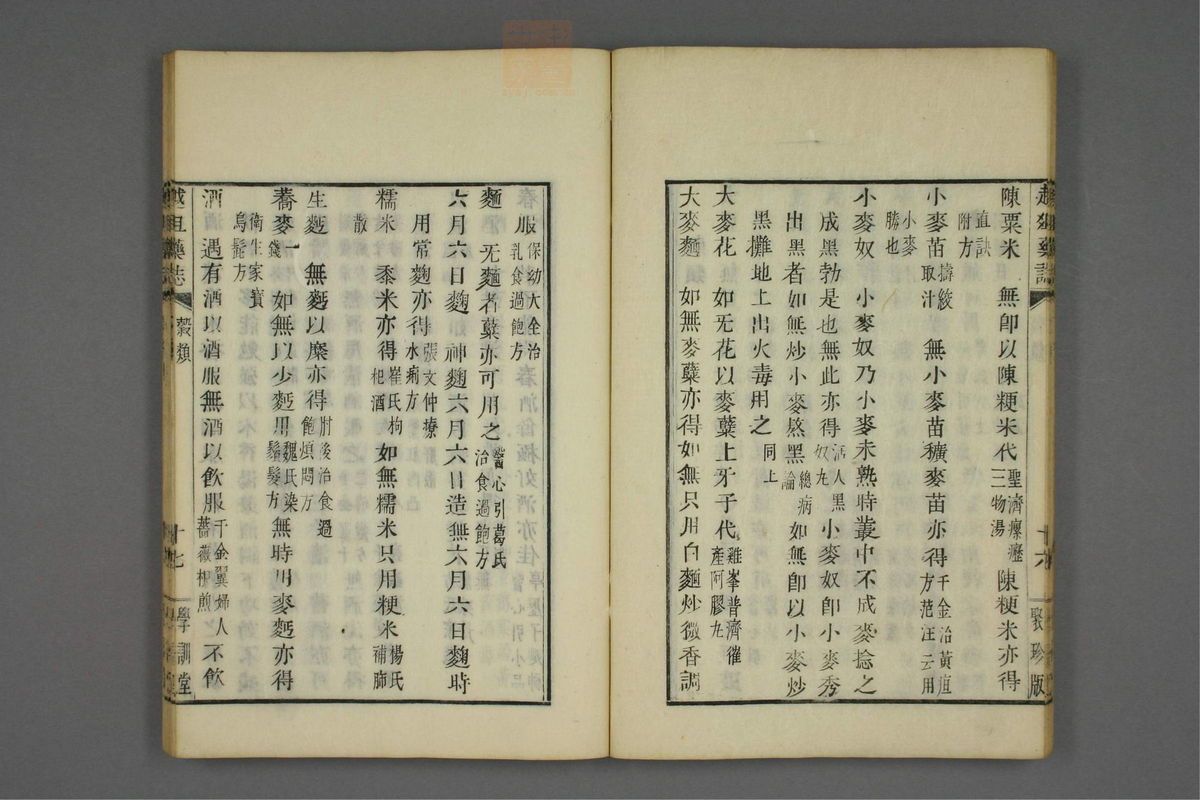 陳粟米 無卽以陳粳米代聖濟瘰癧三物湯陳粳米亦得
直訣附方
小麥苗擣絞取汁 無小麥苗穬麥苗亦得千金治黃疸方范汪云用
小麥勝也
小麥奴 小麥奴乃小麥未熟時叢中不成麥捻之
成黑勃是也無此亦得活人黑奴丸小麥奴卽小麥秀
出黑者如無炒小麥熬黑總病論如無卽以小麥炒
黑攤地上出火毒用之同上
大麥花 如无花以麥蘗上牙子代雞峯普濟催產阿膠丸
大麥麵 如無麥蘗亦得如無只用白麵炒微香調
十六 聚珍版
服保幼大全治乳食過飽方
麵 无麵者蘗亦可用之醫心引葛氏治食過飽方
六月六日麴 神麴六月六日造無六月六日麴時
用常麴亦得張文仲療水痢方
糯米 黍米亦得崔氏枸杞酒如無糯米只用粳米楊氏補肺
散
生麪 無麪以糜亦得肘後治食過飽煩悶方
蕎麥一錢 如無以少麪用魏氏染鬚髮方無時用麥麪亦得
衛生家寶烏髭方
酒 遇有酒以酒服無酒以飲服千金翼婦人薔薇根煎不飲
越俎藥誌 穀類 十七 學訓堂